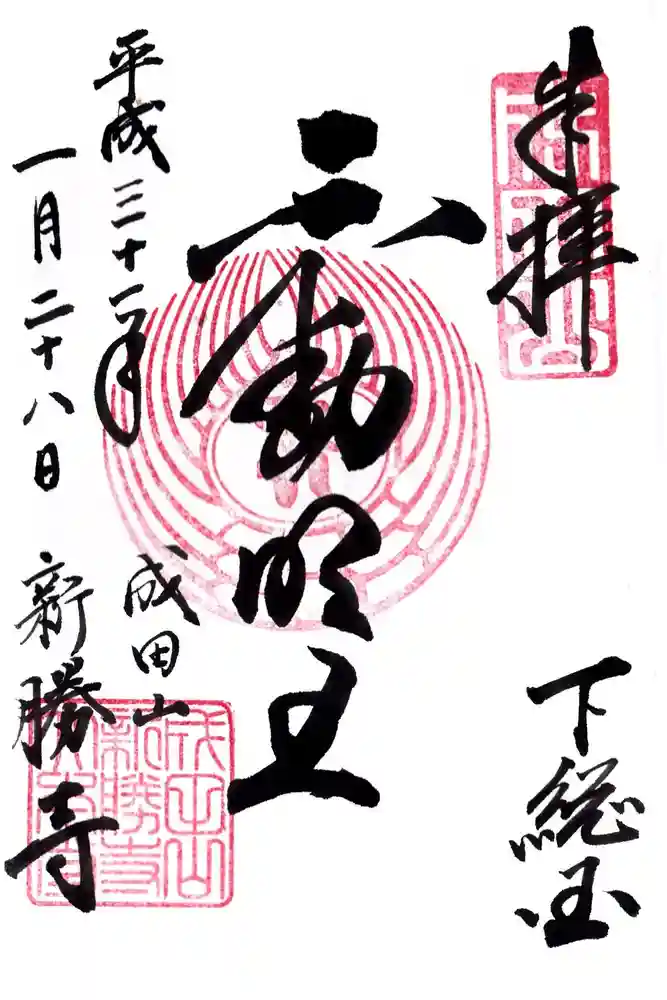 奉拝
下総国
不動明王
平成三十一年
一月二十八日
成田山
新勝寺
成田山
新勝寺